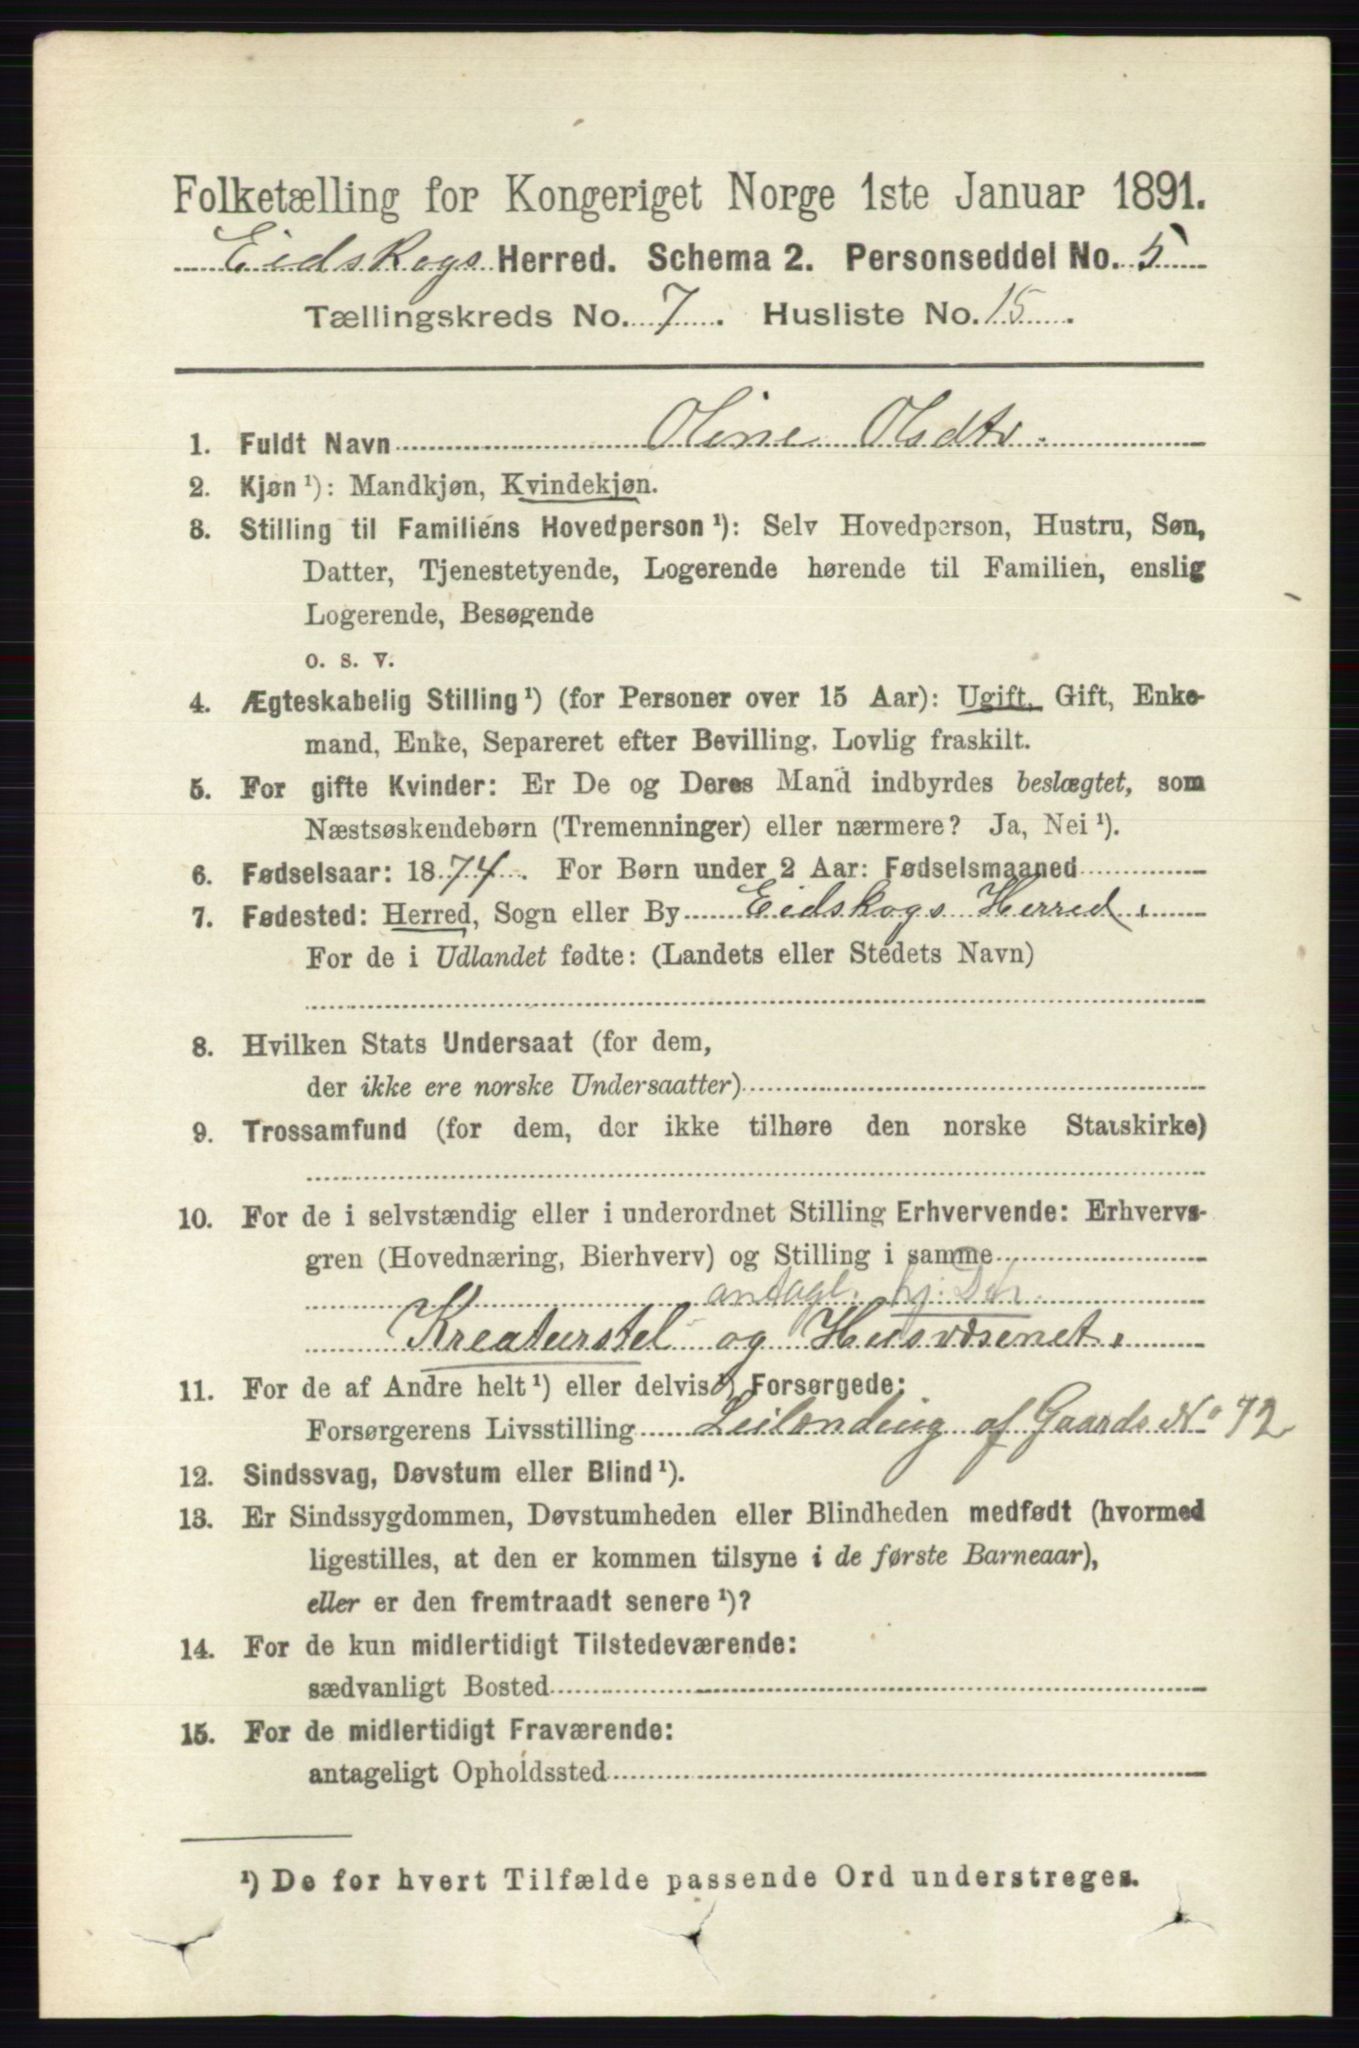 Folketælling for Kongeriget Norge 1ste Januar 1891.
Eidskogs Herred. Schema 2. Personseddel No. 5
Tællingskreds No. 7. Husliste No. 15.
1. Fuldt Navn Oline Olsdtr.
2. Kjøn ¹): Mandkjøn, Kvindekjøn.
3. Stilling til Familiens Hovedperson ¹): Selv Hovedperson, Hustru, Søn,
Datter, Tjenestetyende, Logerende hørende til Familien, enslig
Logerende, Besøgende
o. s. v.
4. Ægteskabelig Stilling ¹) (for Personer over 15 Aar): Ugift, Gift, Enke-
mand, Enke, Separeret efter Bevilling, Lovlig fraskilt.
5. For gifte Kvinder: Er De og Deres Mand indbyrdes beslægtet, som
Næstsøskendebørn (Tremenninger) eller nærmere? Ja, Nei ¹).
6. Fødselsaar: 1874. For Børn under 2 Aar: Fødselsmaaned
7. Fødested: Herred, Sogn eller By Eidskogs Herred.
For de i Udlandet fødte: (Landets eller Stedets Navn)
8. Hvilken Stats Undersaat (for dem,
der ikke ere norske Undersaatter)
9. Trossamfund (for dem, der ikke tilhøre den norske Statskirke)
10. For de i selvstændig eller i underordnet Stilling Erhvervende: Erhvervs-
gren (Hovednæring, Bierhverv) og Stilling i samme
antagl. hj. Dtr.
Kreaturstel og Husvæsenet.
11. For de af Andre helt ¹) eller delvis ¹) Forsørgede:
Forsørgerens Livsstilling Leilænding af Gaards No 72
12. Sindssvag, Døvstum eller Blind ¹).
13. Er Sindssygdommen, Døvstumheden eller Blindheden medfødt (hvormed
ligestilles, at den er kommen tilsyne i de første Barneaar),
eller er den fremtraadt senere ¹)?
14. For de kun midlertidigt Tilstedeværende:
sædvanligt Bosted
15. For de midlertidigt Fraværende:
antageligt Opholdssted
¹) De for hvert Tilfælde passende Ord understreges.